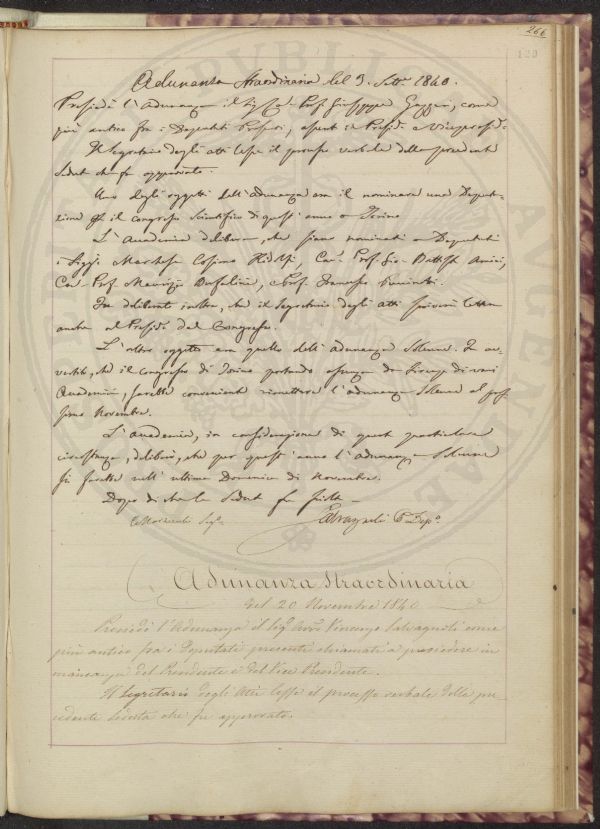 266
120
Adunanza Straordinaria del 9. Sett.e 1840.
Presiedè l'adunanza il Sig.r Prof. Giuseppe Gazzeri, come
più antico fra i Deputati Presenti, assenti i Presid. e Vicepresid.
Il Segretario degli atti lesse il processo verbale della precedente
Seduta che fu approvato.
Uno degli oggetti dell'adunanza era il nominare una Deputa-
zione per il congresso Scientifico di quest'anno a Torino
L'Accademia deliberò, che siano nominati a Deputati
i Sigg.i Marchese Cosimo Ridolfi, Cav. Prof. Gio. Battista Amici,
Cav. Prof. Maurizio Bufalini, e Prof. Francesco
Fu deliberato inoltre, che il Segretario degli atti scrivesse lettera
anche al Presid. del Congresso.
L'altro oggetto era quello dell'adunanza Solenne. Fu av-
vertito, che il congresso di Torino portando assenza da Firenze di vari
Accademici, sarebbe conveniente rimettere l'adunanza Solenne al pros-
simo Novembre.
L'Accademia, in considerazione di questa particolare
circostanza, deliberò, che per quest'anno l'adunanza Solenne
si facesse nell'ultima Domenica di Novembre.
Dopo di che la Seduta fu sciolta
Seg.o Salvagnoli
Adunanza Straordinaria
del 20 Novembre 1840
Presiedè l'Adunanza il Sig. Avv. Vincenzo Salvagnoli come
più antico fra i Deputati presenti chiamati a presiedere in
mancanza del Presidente e del Vice Presidente.
Il Segretario degli Atti lesse il processo verbale della pre-
cedente seduta che fu approvato.